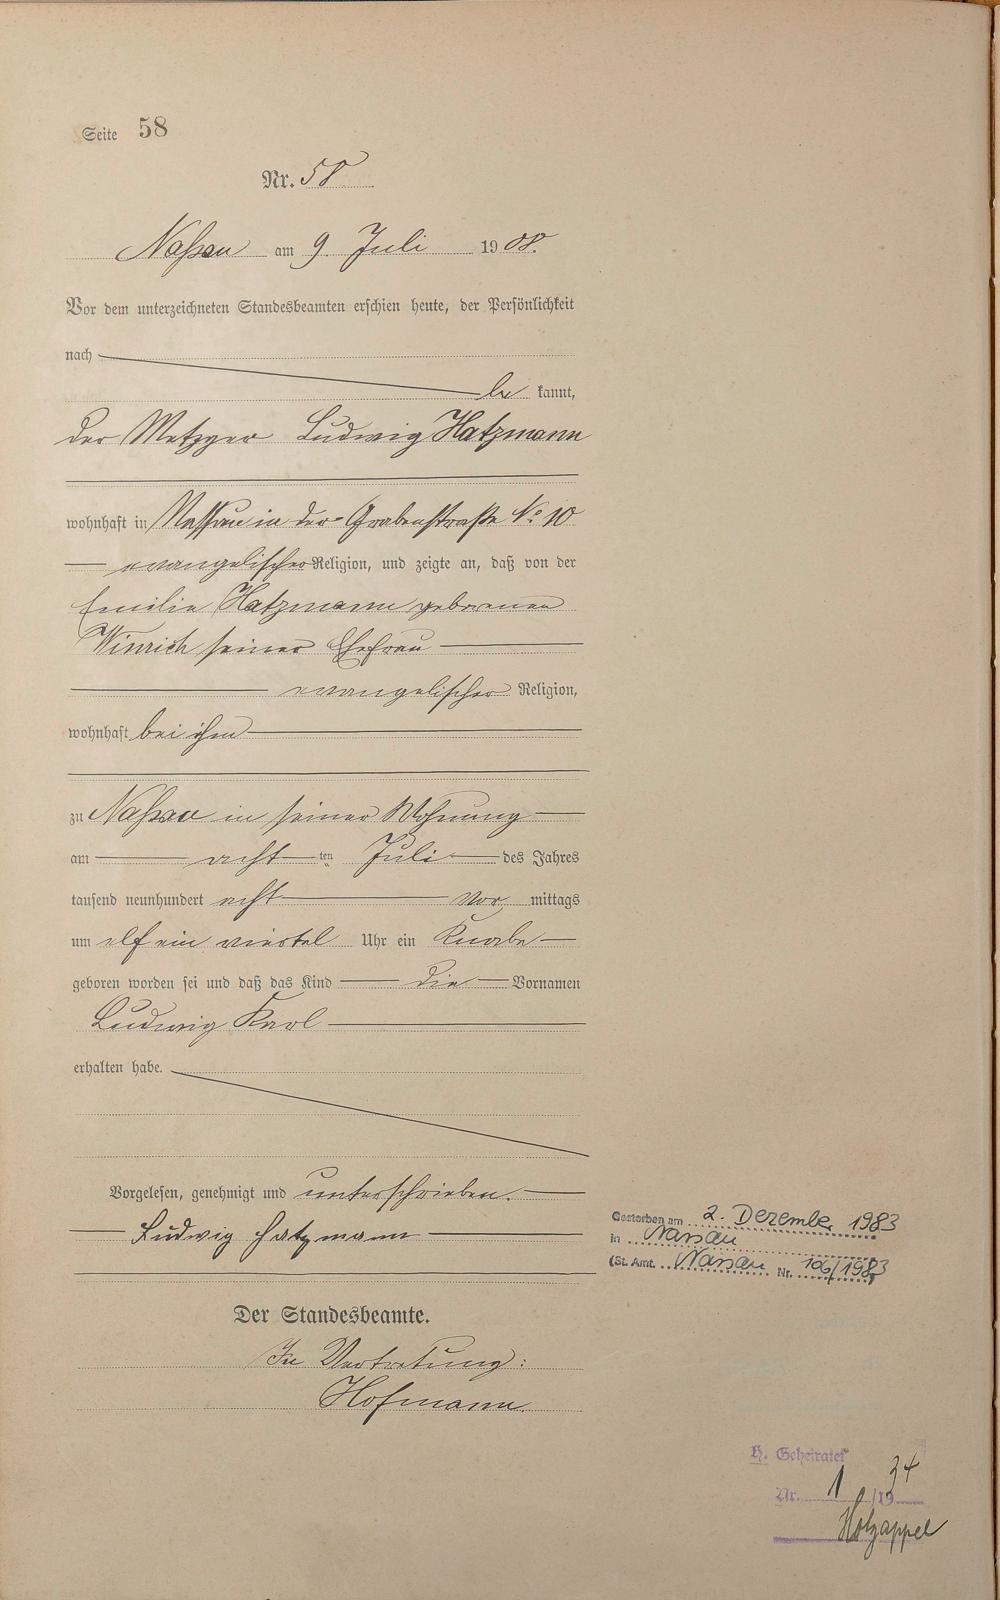 Seite 58
Nr. 58
Nassau am 9 Juli 1908.
Vor dem unterzeichneten Standesbeamten erschien heute, der Persönlichkeit
nach
be kannt,
der Metzger Ludwig Hatzmann
wohnhaft in Nassau in der Grabenstraße No 10
evangelischer Religion, und zeigte an, daß von der
Emilie Hatzmann geborenen
Winrich seiner Ehefrau
evangelischer Religion,
wohnhaft bei ihm
zu Nassau in seiner Wohnung
am acht ten Juli des Jahres
tausend neunhundert acht vor mittags
um elf ein viertel Uhr ein Knabe
geboren worden sei und daß das Kind die Vornamen
Ludwig Karl
erhalten habe.
Vorgelesen, genehmigt und unterschrieben.
Ludwig Hatzmann
Gestorben am 2. Dezember 1983
in Nassau
(St. Amt. Nassau Nr. 106/1983)
Der Standesbeamte.
In Vertretung:
Hofmann.
H. Geheiratet
Nr. 1 /1934
Holzappel